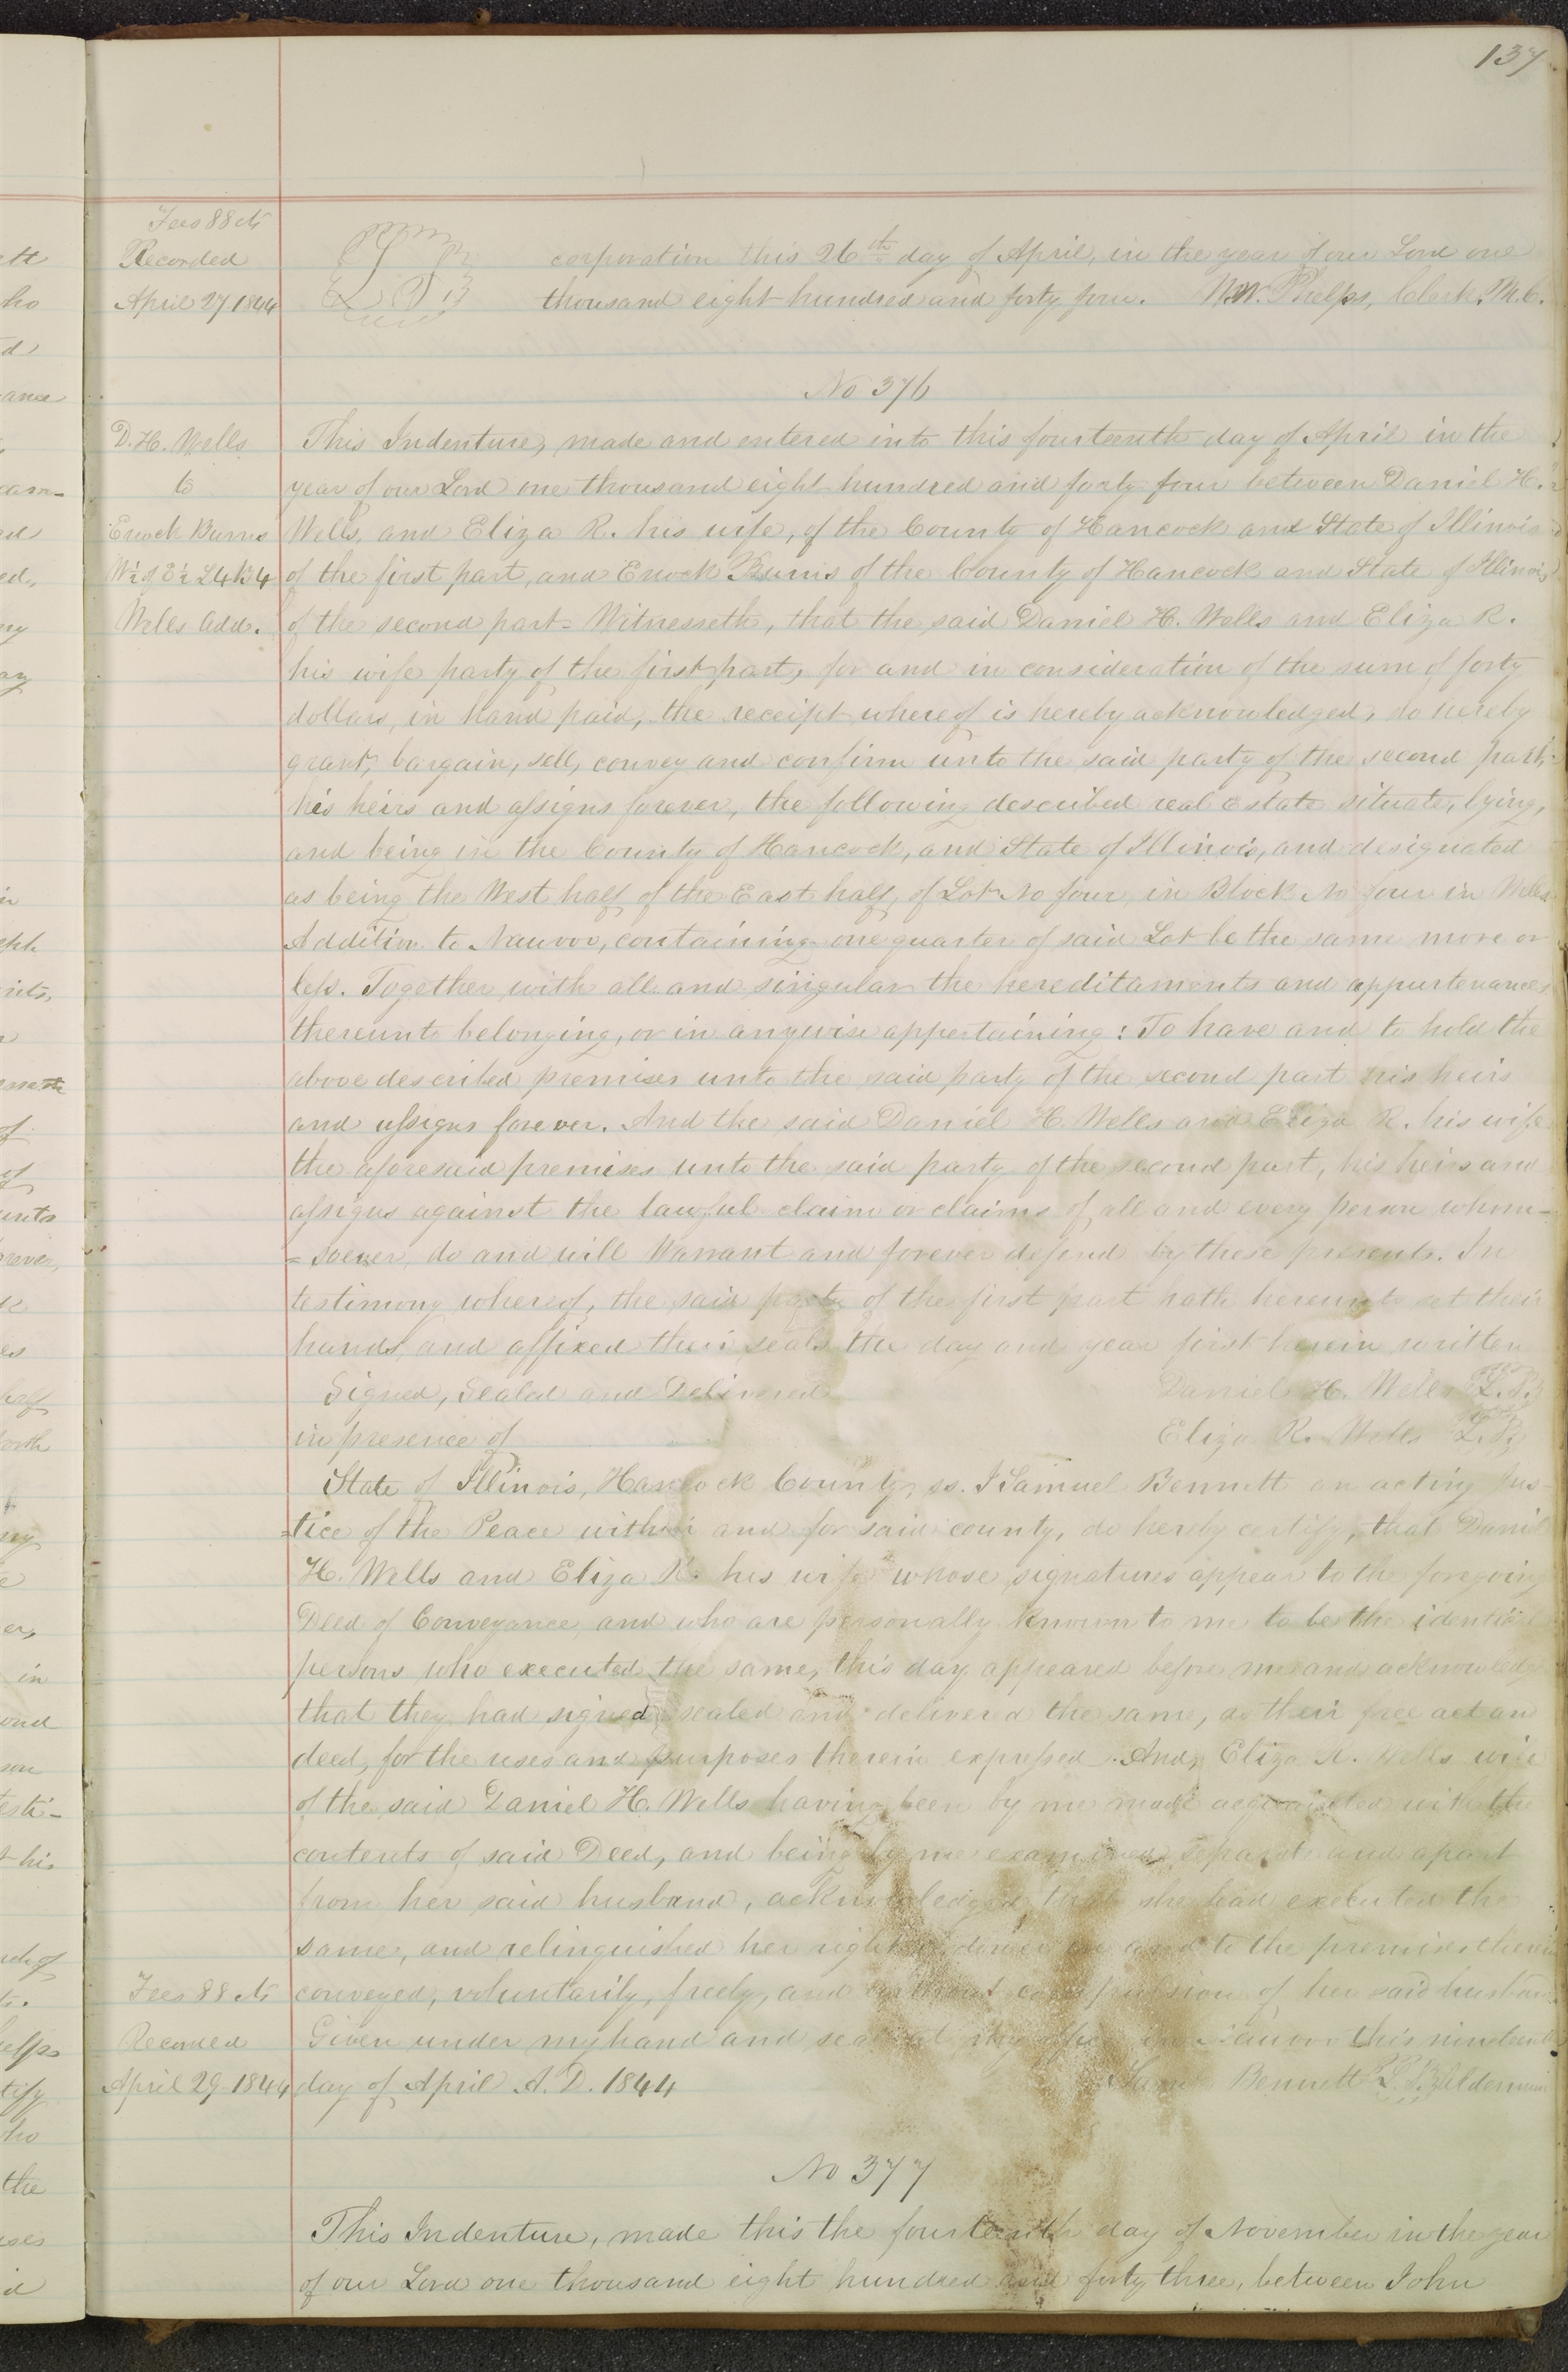 137
Fees 88 cts
Recorded
April 27 1844
corporation this 26th day of April, in the year of our Lord one
thousand eight hundred and forty four. W.W. Phelps, Clerk, M.C.
No 376
D. H. Wells
to
Enoch Burns
W½ of E½ L4 B4
Wells Add.
This Indenture, made and entered into this fourteenth day of April in the
year of our Lord one thousand eight hundred and forty four between Daniel H.
Wells, and Eliza R. his wife, of the County of Hancock and State of Illinois
of the first part, and Enock Burns of the County of Hancock and State of Illinois
of the second part = Witnesseth, that the said Daniel H. Wells and Eliza R.
his wife party of the first part, for and in consideration of the sum of forty
dollars, in hand paid, the receipt whereof is hereby acknowledged, do hereby
grant, bargain, sell, convey and confirm unto the said party of the second part,
his heirs and assigns forever, the following described real estate situate, lying,
and being in the County of Hancock, and State of Illinois, and designated
as being the West half of the East half, of Lot No four, in Block No four in Wells
Addition to Nauvoo, containing one quarter of said Lot be the same more or
less. Together with all and singular the hereditaments and appurtenances
thereunto belonging, or in anywise appertaining: To have and to hold the
above described premises unto the said party of the second part his heirs
and assigns forever. And the said Daniel H. Wells and Eliza R. his wife
the aforesaid premises unto the said party of the second part, his heirs and
assigns against the lawful claim or claims of all and every person whom-
=soever, do and will Warrant and forever defend by these presents. In
testimony whereof, the said party of the first part hath hereunto set their
hands, and affixed their seals the day and year first herein written
Signed, Sealed and Delivered Daniel H. Wells L.S.
in presence of Eliza R. Wells L.S.
State of Illinois, Hancock County, ss. I Samuel Bennett an acting Jus-
=tice of the Peace within and for said county, do hereby certify, that Daniel
H. Wells and Eliza R. his wife whose signatures appear to the foregoing
Deed of Conveyance, and who are personally known to me to be the identical
persons who executed the same, this day appeared before me and acknowledge
that they had signed, sealed and delivered the same, as their free act and
deed, for the uses and purposes therein expressed. And, Eliza R. Wells wife
of the said Daniel H. Wells having been by me made acquainted with the
contents of said Deed, and being by me examined separate and apart
from her said husband, acknowledged that she had executed the
same, and relinquished her right of dower in and to the premises therein
conveyed, voluntarily, freely, and without compulsion of her said husband
Given under my hand and seal at my office in Nauvoo this nineteenth
day of April A.D. 1844 Samuel Bennett L.S. Alderman
Fees 88 cts
Recorded
April 29 1844
No 377
This Indenture, made this the fourteenth day of November in the year
of our Lord one thousand eight hundred and forty three, between John